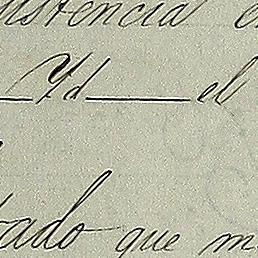 istencia e
Yd el
tado que m